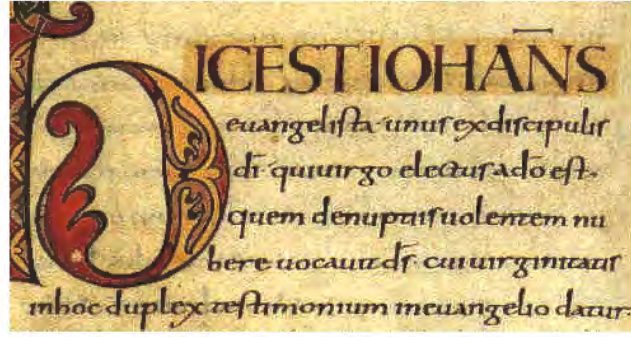 hIC EST IOHAN̄S
euangelista · unus ex discipulis
dī · qui uirgo electus a dō est ·
quem de nuptiis uolentem nu
bere uocauit d̄s · cui uirginitatis
in hoc duplex testimonium in euangelio datur ·